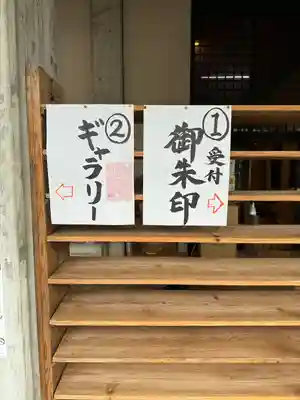 ①受付
御朱印
②
ギャラリー